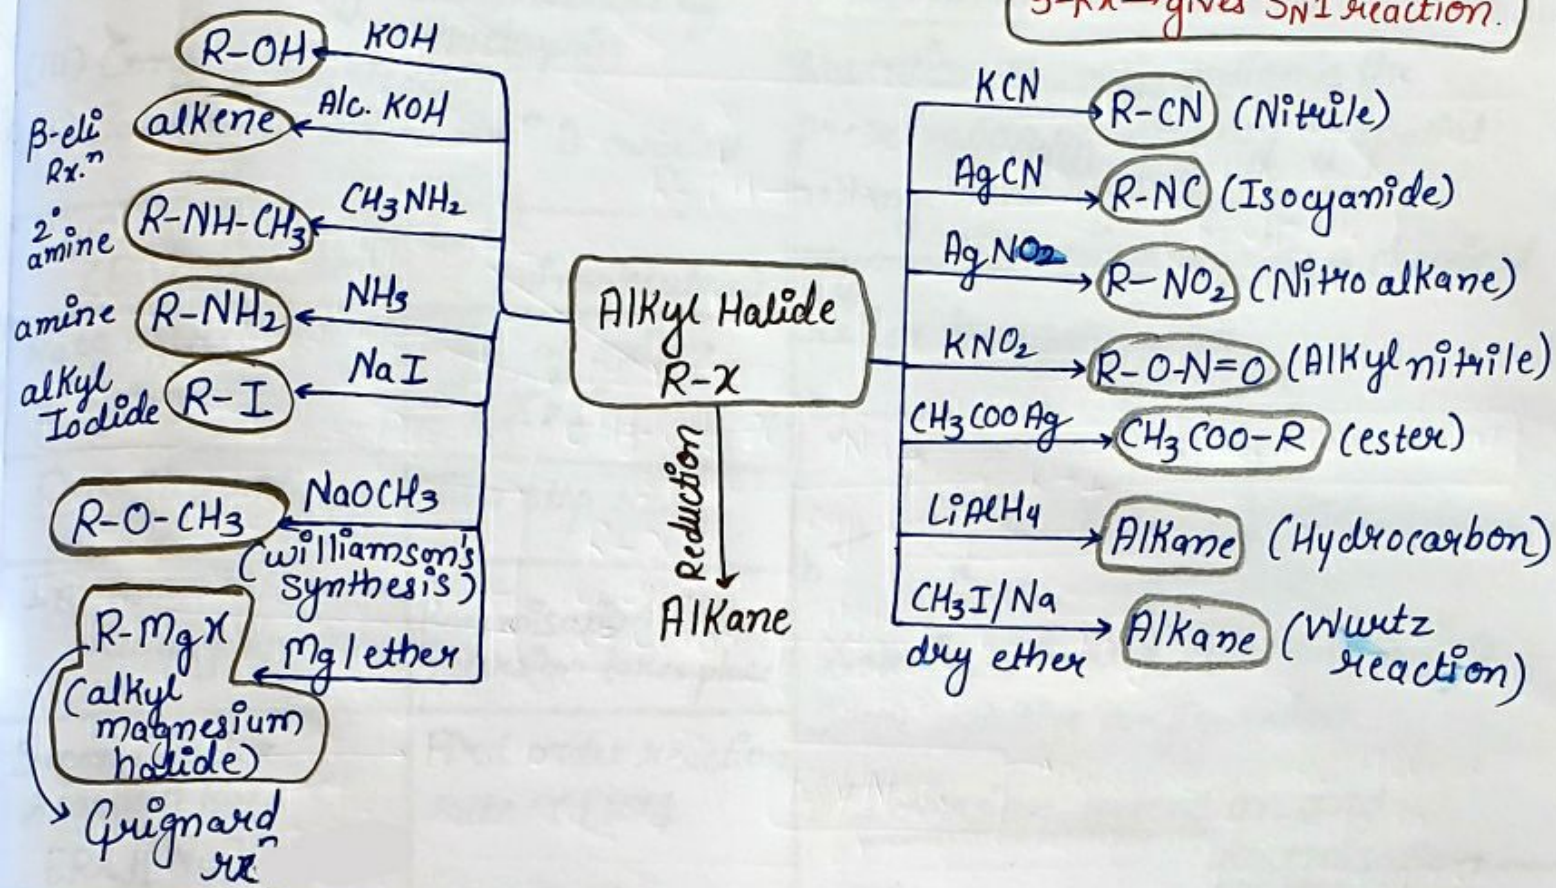 3°-RX → gives SN1 reaction.
R-OH
KOH
β-eli
Rx.ⁿ
alkene
Alc. KOH
2°
amine
R-NH-CH₃
CH₃NH₂
amine
R-NH₂
NH₃
alkyl
Iodide
R-I
NaI
R-O-CH₃
NaOCH₃
(williamson's
synthesis)
R-Mgx
Mg/ether
(alkyl
magnesium
halide)
Grignard
rxⁿ
Alkyl Halide
R-x
Reduction
Alkane
KCN
R-CN (Nitrile)
AgCN
R-NC (Isocyanide)
AgNO₂
R-NO₂ (Nitro alkane)
KNO₂
R-O-N=O (Alkyl nitrile)
CH₃COOAg
CH₃COO-R (ester)
LiAlH₄
Alkane (Hydrocarbon)
CH₃I/Na
dry ether
Alkane (Wurtz
reaction)